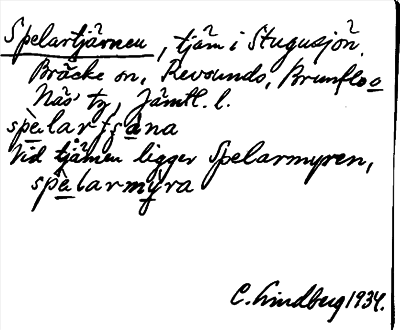 Spelartjärnen, tjärn i Stugusjön,
Bräcke sn, Revsunds, Brunflo o
Näs tg, Jämtl. l.
spèlartʃɑ̀na
Vid tjärnen ligger Spelarmyren,
spèlarmýra
C. Lindberg 1934.